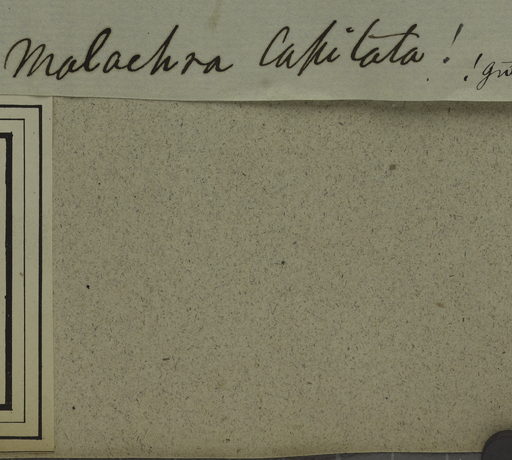 Malachra Capitata!